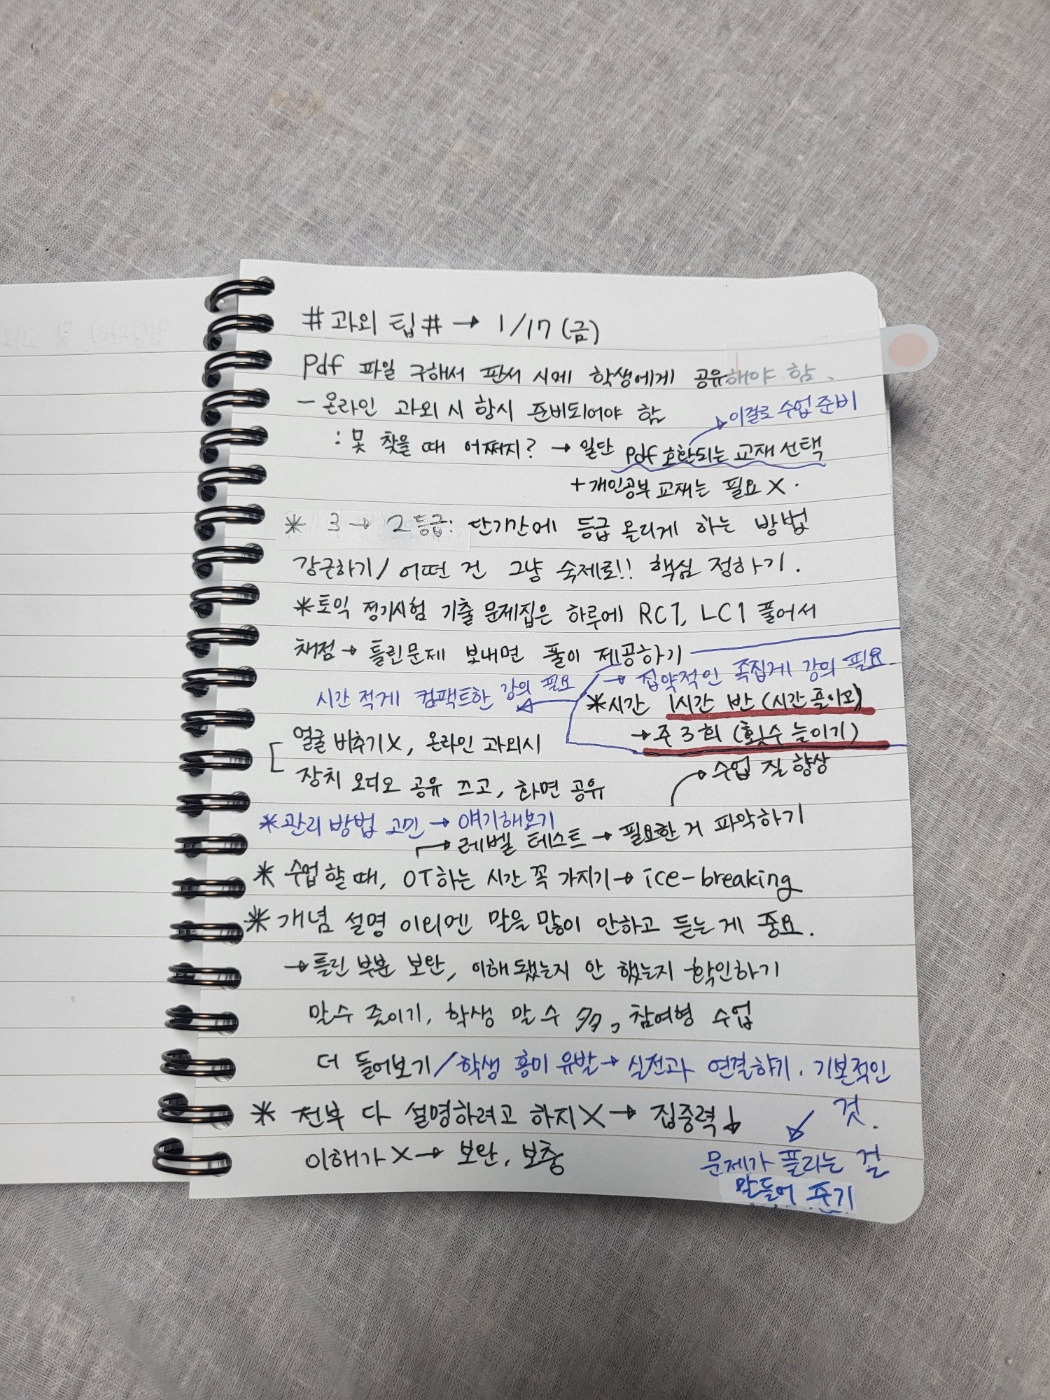 #과외 팁# → 1/17 (금)
pdf 파일 구해서 판서 시에 학생에게 공유해야 함.
- 온라인 과외 시 항시 준비되어야 함
이걸로 수업 준비
: 못 찾을 때 어쩌지? → 일단 pdf 호환되는 교재 선택
+ 개인공부 교재는 필요 X.
* 3 → 2등급: 단기간에 등급 올리게 하는 방법
강근하기 / 어떤 건 그냥 숙제로!! 핵심 정하기.
*토익 정기시험 기출 문제집은 하루에 RC1, LC1 풀어서
채점 → 틀린문제 보내면 풀이 제공하기
→ 집약적인 족집게 강의 필요.
시간 적게 컴팩트한 강의 필요
*시간 1시간 반 (시간 줄이고)
→ 주 3회 (횟수 늘이기)
얼굴 비추기X, 온라인 과외시
→ 수업 질 향상
장치 오디오 공유 끄고, 화면 공유
*관리 방법 고민 → 얘기해보기
→ 레벨 테스트 → 필요한 거 파악하기
* 수업할 때, OT하는 시간 꼭 가지기 → ice-breaking
* 개념 설명 이외엔 말을 많이 안하고 듣는 게 중요.
→ 틀린 부분 보완, 이해 됐는지 안 했는지 확인하기
말수 줄이기, 학생 말 수 , 참여형 수업
더 들어보기 / 학생 흥미 유발 → 실전과 연결하기. 기본적인
것.
* 전부 다 설명하려고 하지 X → 집중력↓
이해가 X → 보완, 보충
문제가 풀리는 걸
만들어 주기